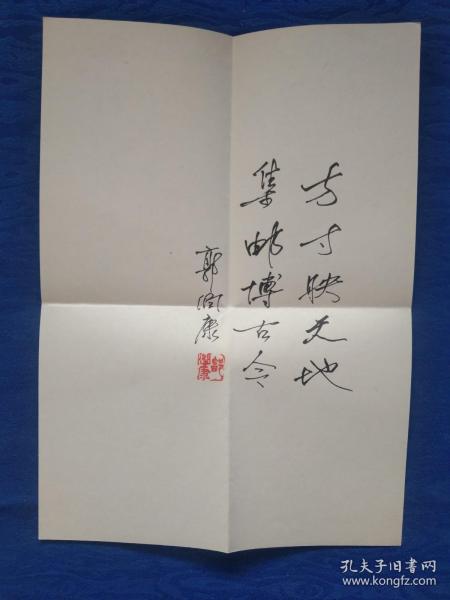 方寸映天地
集邮博古今
郭润康
孔夫子旧书网
www.kongfz.com